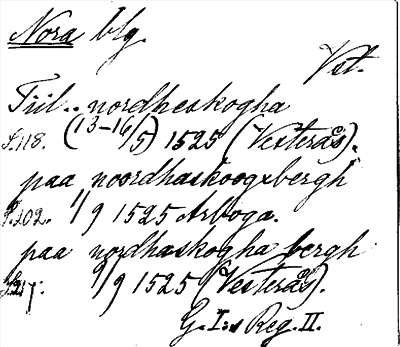 Nora blg.
Vst.
Tiil.. nordheskogha
s. 118. (13-16/5) 1525 (Vesterås).
paa noordhaskoogxbergh
s. 202. 1/9 1525 Arboga.
paa nordhaskogha bergh
s. 217. 9/9 1525 (Vesterås).
G. I:s Reg. II.